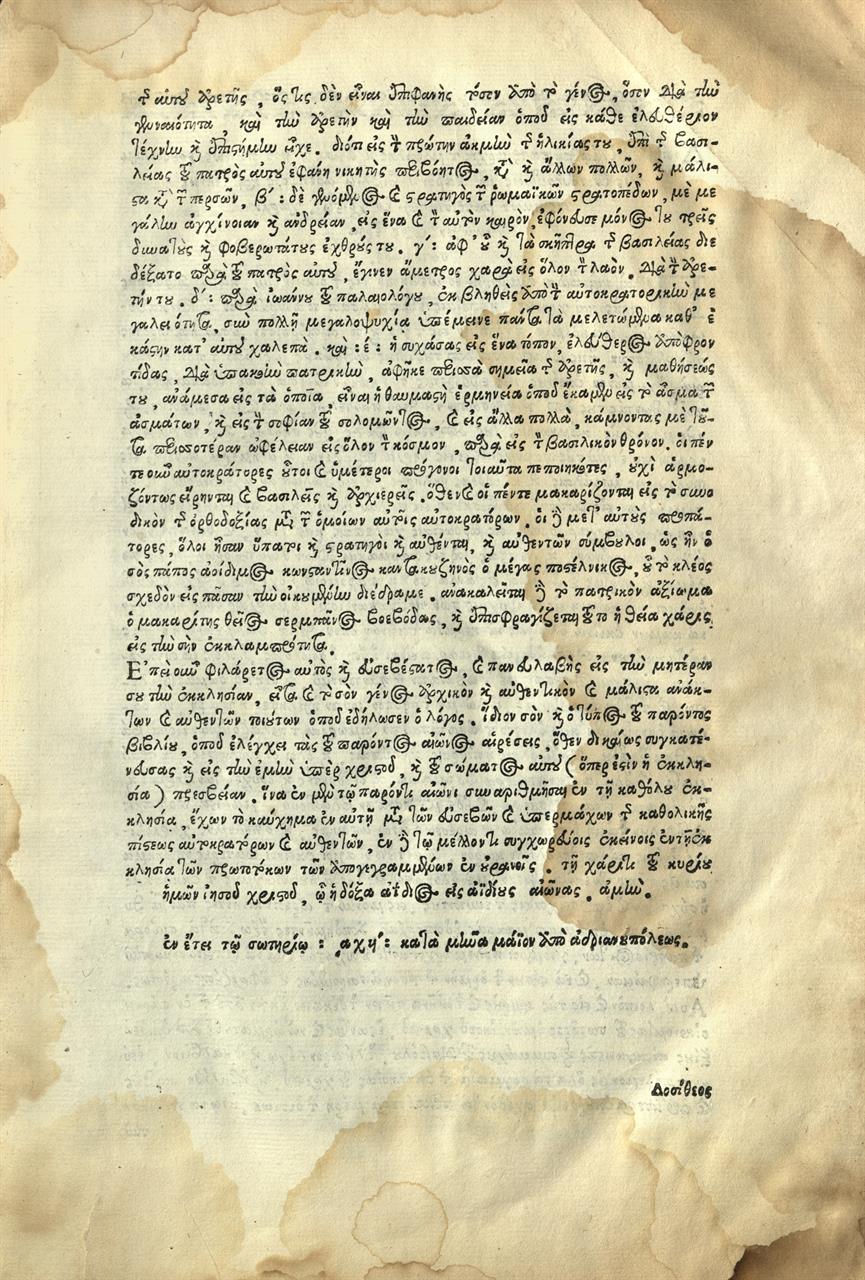 τῆς αὐτοῦ ἀρετῆς, ὅς τις δὲν εἶναι ἐπιφανὴς τόσον ἀπὸ τὸ γένος, ὅσον διὰ τὴν
γενναιότητα καὶ τὴν ἀρετὴν καὶ τὴν παιδείαν ὁποῦ εἰς κάθε ἐλευθέριον
τέχνην καὶ ἐπιστήμην εἶχε. διότι εἰς τὴν πρώτην ἀκμὴν τῆς ἡλικίας του, ἐπὶ τῆς βασι-
λείας τοῦ πατρὸς αὐτοῦ ἐφάνη νικητὴς περιβόητος, κατὰ καὶ ἄλλων πολλῶν, καὶ μάλι-
στα κατὰ τῶν περσῶν, β΄: δὲ γενόμενος καὶ στρατηγὸς τῶν ῥωμαϊκῶν στρατοπέδων, μὲ με
γάλην ἀγχίνοιαν καὶ ἀνδρείαν, εἰς ἕνα καὶ τὸν αὐτὸν καιρὸν, ἐφόνευσε μόνος του τρεῖς
δυνατοὺς καὶ φοβερωτάτους ἐχθρούς του. γ΄: ἀφ' οὗ καὶ τὰ σκῆπτρα τῆς βασιλείας διε
δέξατο παρὰ τοῦ πατρὸς αὐτοῦ, ἔγινεν ἄμετρος χαρὰ εἰς ὅλον τὸν λαὸν, διὰ τὴν ἀρε-
τήν του. δ΄: παρὰ ἰωάννου τοῦ παλαιολόγου, ἐκβληθεὶς ἀπὸ τὴν αὐτοκρατορικὴν με
γαλειότητα, σὺν πολλῇ μεγαλοψυχίᾳ ὑπέμεινε πάντα τὰ μελετώμενα καθ' ἑ
κάστην κατ' αὐτοῦ χαλεπὰ. καὶ: έ: ἡσυχάσας εἰς ἕνα τόπον, ἐλεύθερος ἀπὸ φρον
τίδας, διὰ ὑπακοὴν πατρικὴν, ἀφῆκε περισσὰ σημεῖα τῆς ἀρετῆς, καὶ μαθήσεώς
του, ἀνάμεσα εἰς τὰ ὁποῖα, εἶναι ἡ θαυμαστὴ ἑρμηνεία ὁποῦ ἔκαμεν εἰς τὸ ἆσμα τῶν
ἀσμάτων, καὶ εἰς τὴν σοφίαν τοῦ σολομῶντος, καὶ εἰς ἄλλα πολλὰ, κάμνοντας μὲ τοῦ-
τα περισσοτέραν ὠφέλειαν εἰς ὅλον τὸν κόσμον, παρὰ εἰς τὸν βασιλικὸν θρόνον. οἱ πέν
τε οὖν αὐτοκράτορες οὗτοι καὶ ὑμέτεροι πρόγονοι τοιαῦτα πεποιηκότες, οὐχὶ ἁρμο-
ζόντως εἴρηνται καὶ βασιλεῖς καὶ ἀρχιερεῖς. ὅθεν καὶ οἱ πέντε μακαρίζονται εἰς τὸ συνο
δικὸν τῆς ὀρθοδοξίας μετὰ τῶν ὁμοίων αὐτοῖς αὐτοκρατόρων. οἱ δὲ μετ' αὐτοὺς προπά-
τορες, ὅλοι ἦσαν ὕπατοι καὶ στρατηγοὶ καὶ αὐθένται, καὶ αὐθεντῶν σύμβουλοι, ὡς ἦν ὁ
σὸς πάπος ἀοίδιμος κωνσταντῖνος καντακουζηνὸς ὁ μέγας ποστέλνικος, οὗ τὸ κλέος
σχεδὸν εἰς πᾶσαν τὴν οἰκουμένην διέδραμε. ἀνακαλεῖται δὲ τὸ πατρικὸν ἀξίωμα
ὁ μακαρίτης θεῖος σερμπᾶνος βοεβόδας, καὶ ἐπισφραγίζεται τοῦτο ἡ θεία χάρις
εἰς τὴν σὴν ἐκλαμπρότητα.
Ἐπεὶ οὖν φιλάρετος αὐτὸς καὶ εὐσεβέστατος, καὶ πανευλαβὴς εἰς τὴν μητέραν
σου τὴν ἐκκλησίαν, εἶτα καὶ τὸ σὸν γένος ἀρχικὸν καὶ αὐθεντικὸν καὶ μάλιστα ἀνάκ-
των καὶ αὐθεντῶν τοιούτων ὁποῦ ἐδήλωσεν ὁ λόγος. ἴδιον σὸν καὶ ὁ τύπος τοῦ παρόντος
βιβλίου, ὁποῦ ἐλέγχει τὰς τοῦ παρόντος αἰῶνος αἱρέσεις, ὅθεν δικαίως συγκατέ-
νευσας καὶ εἰς τὴν ἐμὴν ὑπὲρ χριστοῦ, καὶ τοῦ σώματος αὐτοῦ (ὅπερ ἐστὶν ἡ ἐκκλη-
σία) πρεσβείαν. ἵνα ἐν μὲν τῷ παρόντι αἰῶνι συναριθμῆσαι ἐν τῇ καθόλου ἐκ-
κλησίᾳ, ἔχων τὸ καύχημα ἐν αὐτῇ μετὰ τῶν εὐσεβῶν καὶ ὑπερμάχων τῆς καθολικῆς
πίστεως αὐτοκρατόρων καὶ αὐθεντῶν, ἐν δὲ τῷ μέλλοντι συγχορεύοις ἐκείνοις ἐν τῇ ἐκ
κλησίᾳ τῶν πρωτοτόκων τῶν ἀπογεγραμμένων ἐν οὐρανοῖς. τῇ χάριτι τοῦ κυρίου
ἡμῶν ἰησοῦ χριστοῦ, ᾧ ἡ δόξα ἀΐδιος εἰς ἀϊδίους αἰῶνας. ἀμήν.
ἐν ἔτει τῷ σωτηρίῳ: ͵αχϟ΄: κατὰ μῆνα μάϊον ἀπὸ ἀδριανουπόλεως.
Δοσίθεος